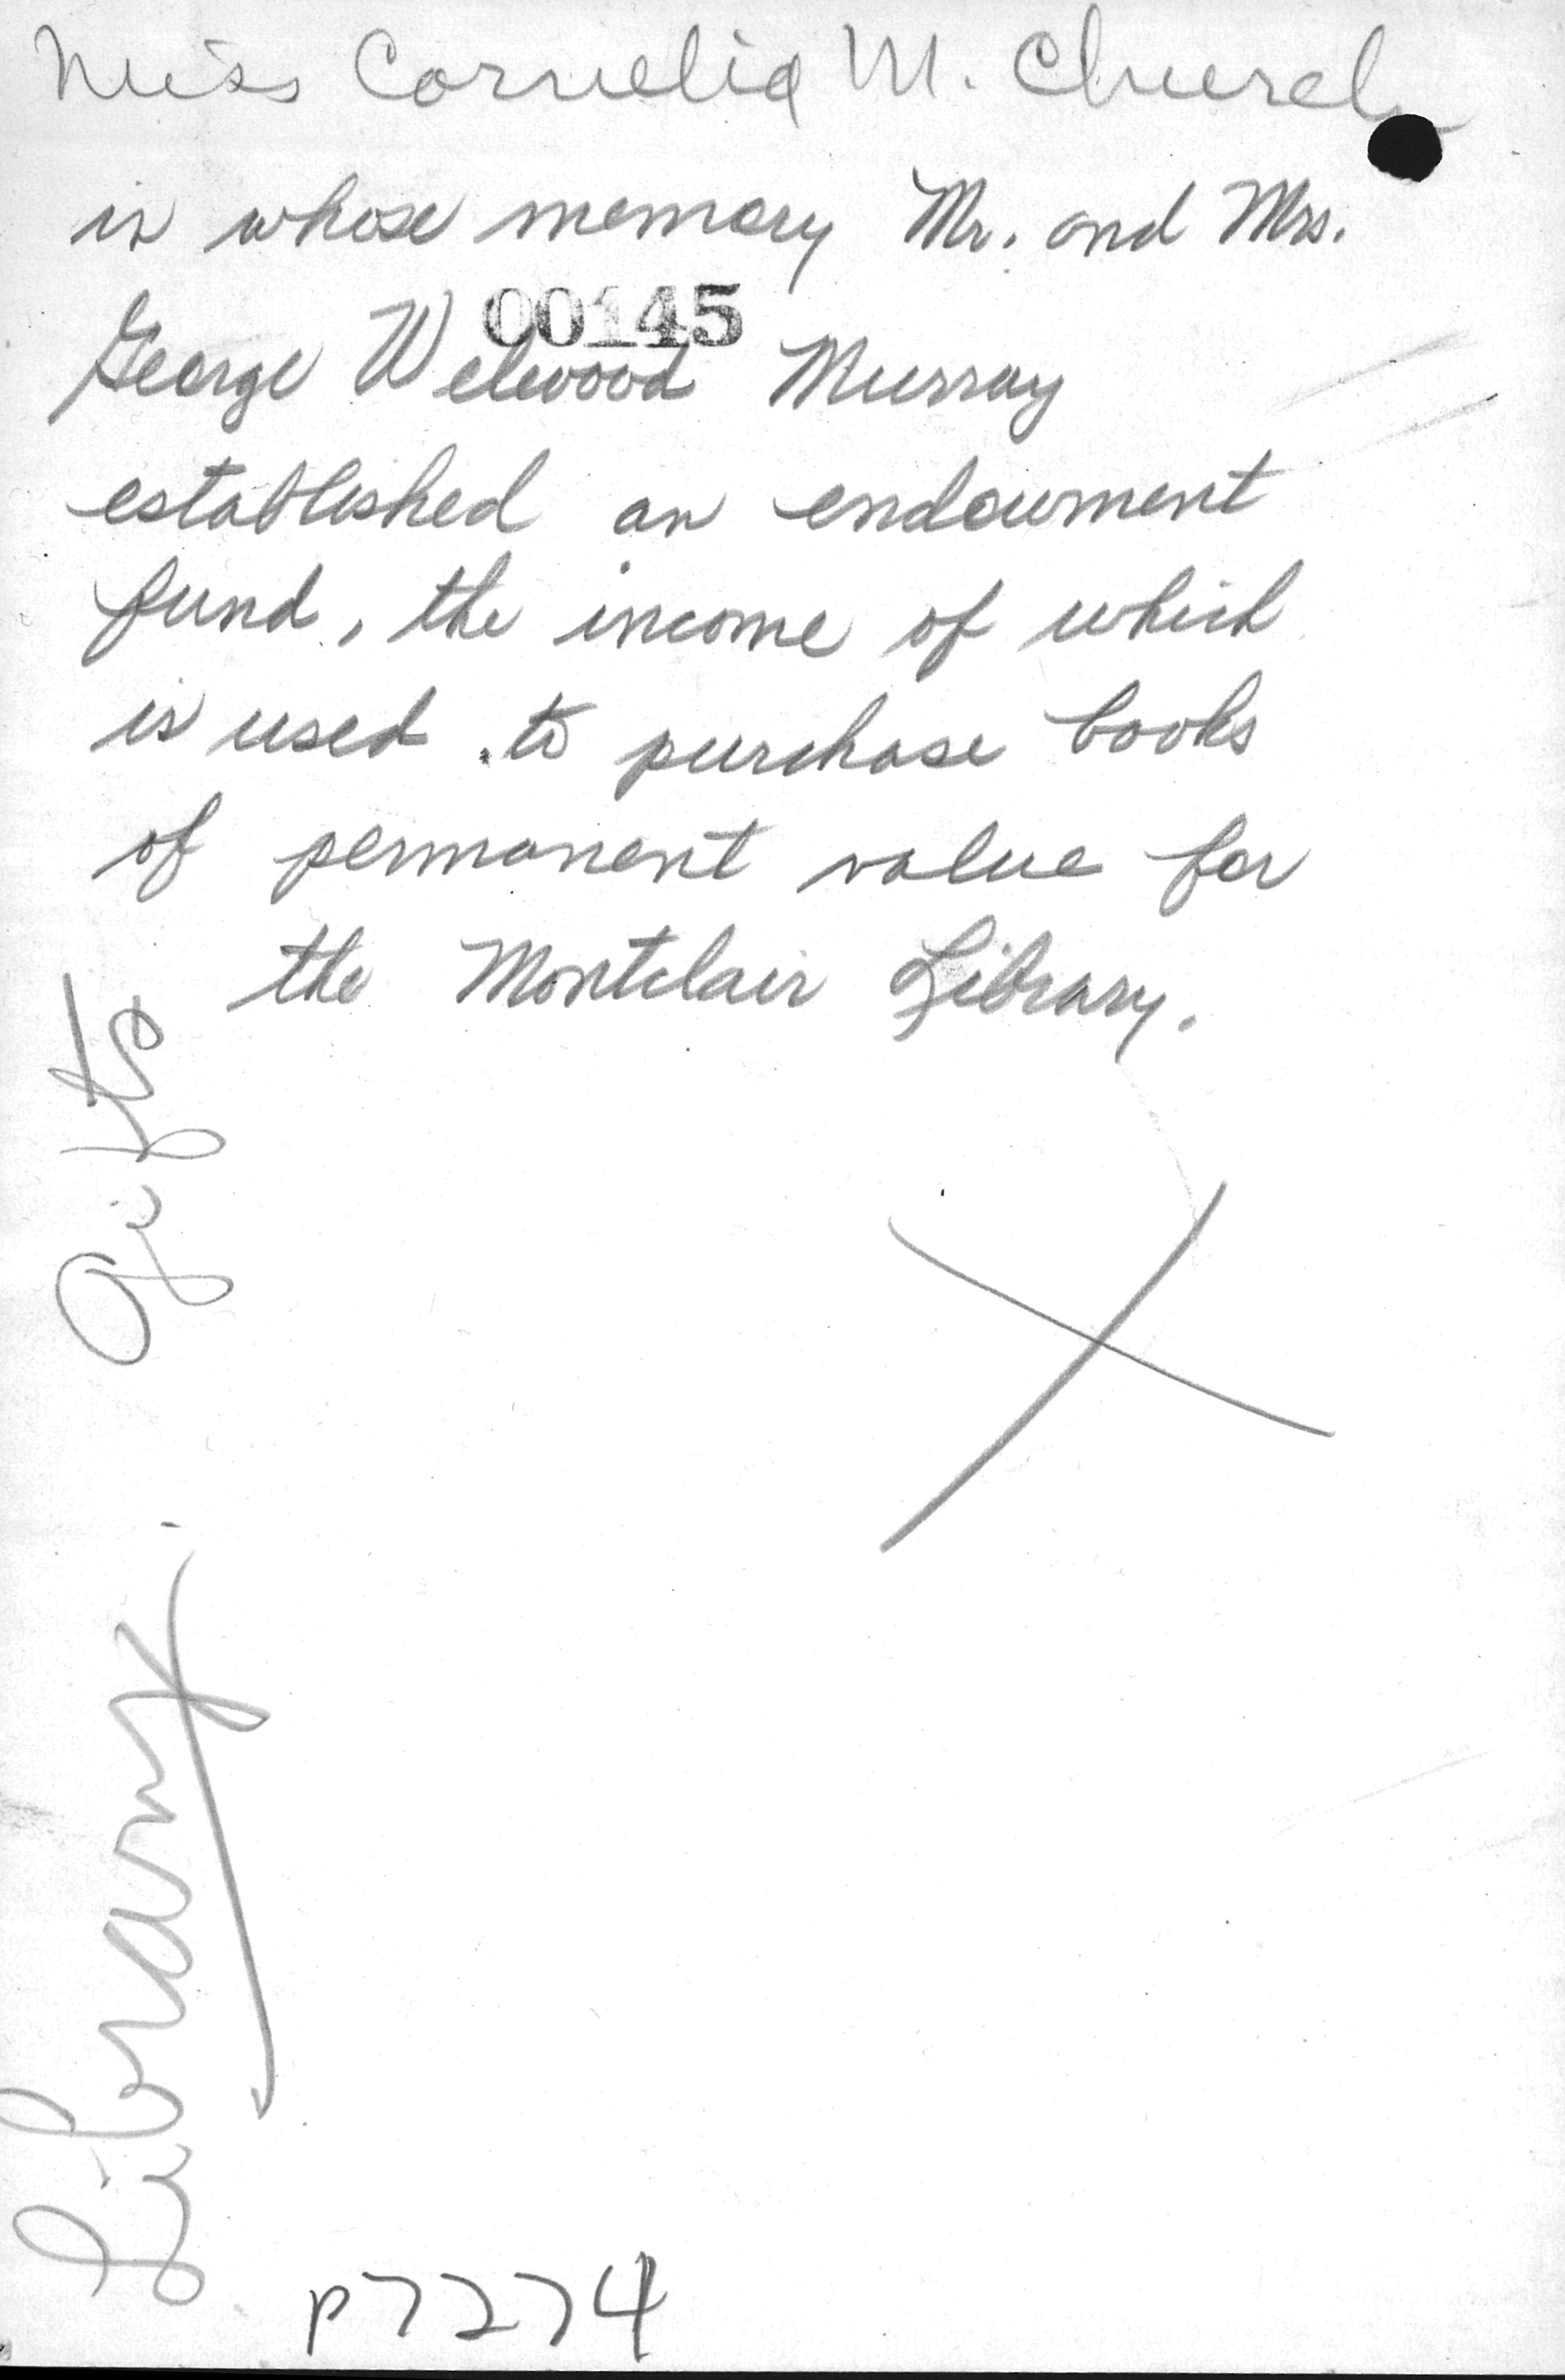 Miss Cornelia M. Church
in whose memory Mr. and Mrs.
00145
George Welwood Murray
established an endowment
fund, the income of which
is used to purchase books
of permanent value for
the Montclair Library.
Library Gifts
P7274